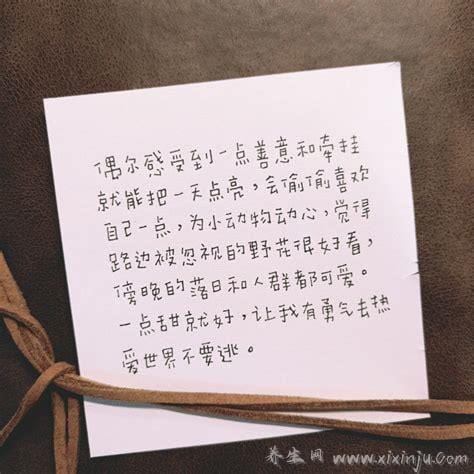 偶尔感受到一点善意和牵挂
就能把一天点亮，会偷偷喜欢
自己一点，为小动物动心，觉得
路边被忽视的野花很好看，
傍晚的落日和人群都可爱。
一点甜就好，让我有勇气去热
爱世界不要逃。
养生网 www.xixinju.com